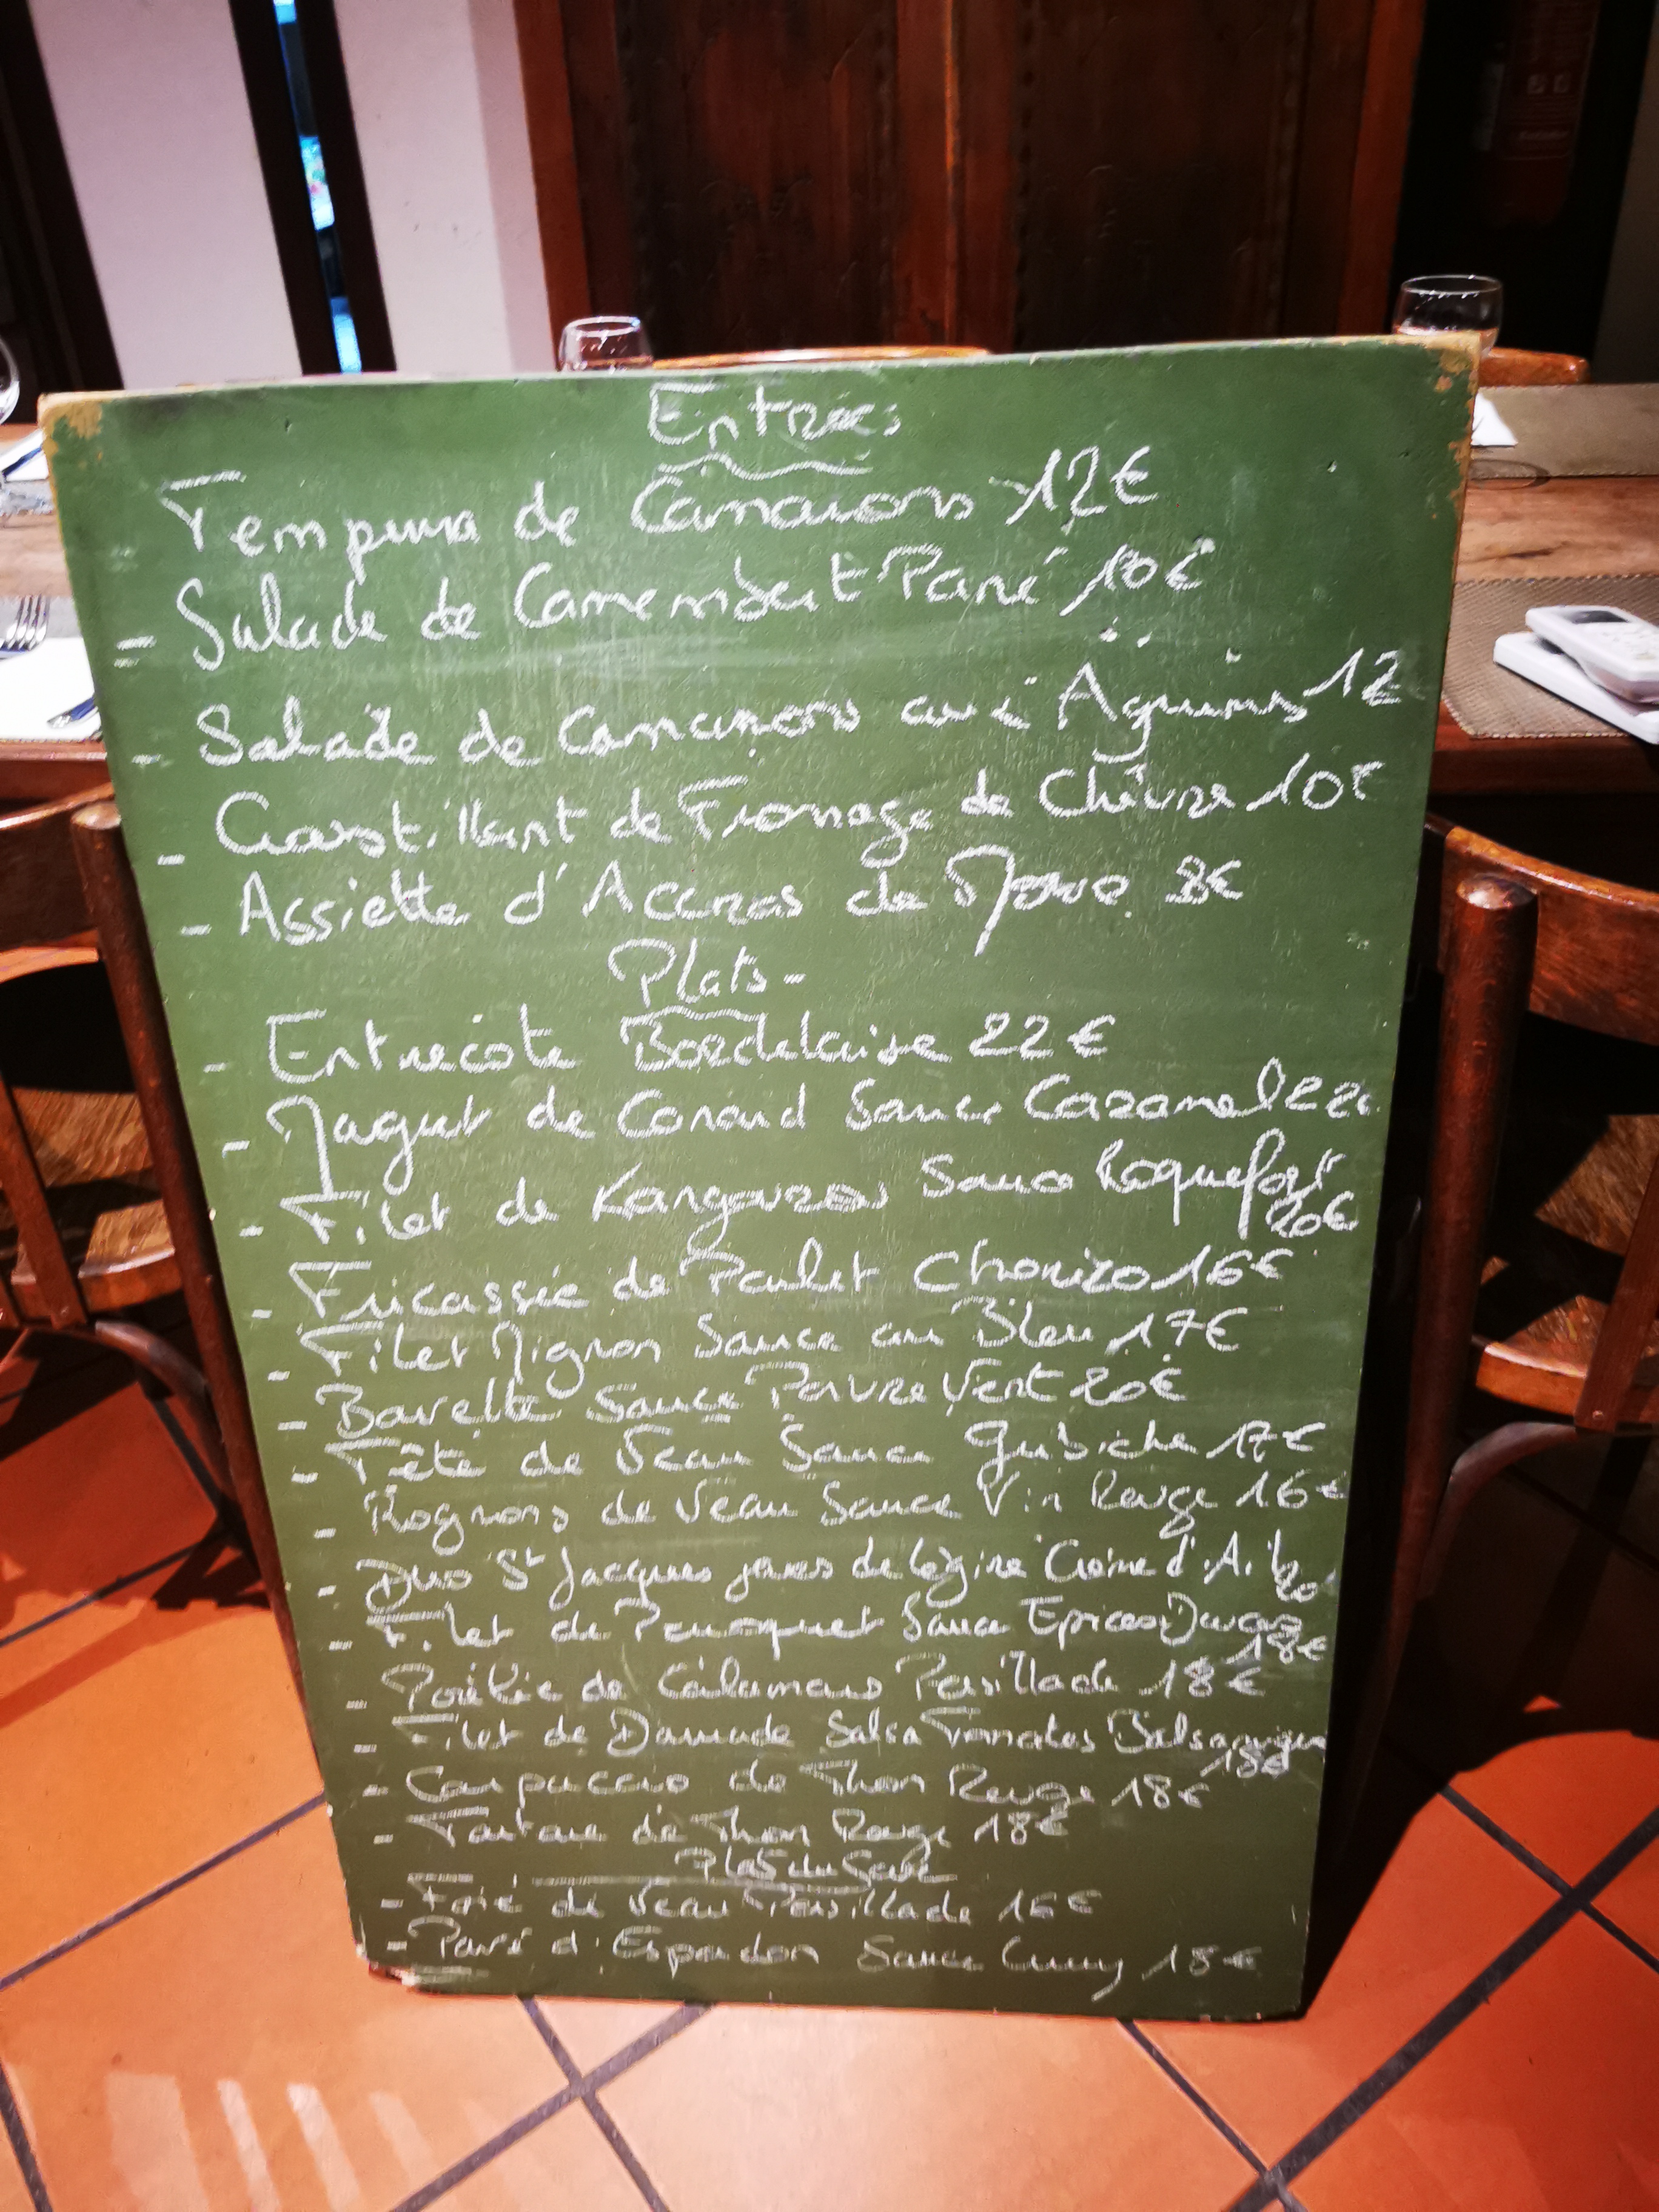 Entrées
Tempura de Camarons 12€
- Salade de Camembert Pané 10€
- Salade de Camarons aux Agrumes 12
- Croustillant de Fromage de Chèvre 10€
- Assiette d'Accras de Morue 8€
Plats -
- Entrecote Bordelaise 22€
- Magret de Canard Sauce Caramel 22€
- Filet de Kangourou Sauce Roquefort
20€
- Fricassée de Poulet Chorizo 16€
- Filet Mignon Sauce au Bleu 17€
- Bavette Sauce Poivre Vert 20€
- Tête de Veau Sauce Gribiche 17€
- Rognons de Veau Sauce Vin Rouge 16€
- Duo St Jacques de Crème d'Ail 20
- Filet de Perroquet Sauce Epices Douces
18€
- Poêlée de Calamars Persillade 18€
- Filet de Daurade Salsa Tomates Balsamique
18€
- Carpaccio de Thon Rouge 18€
- Tartare de Thon Rouge 18€
Plat du
- Foie de Veau Persillade 16€
- Pavé d'Espadon Sauce Curry 18€